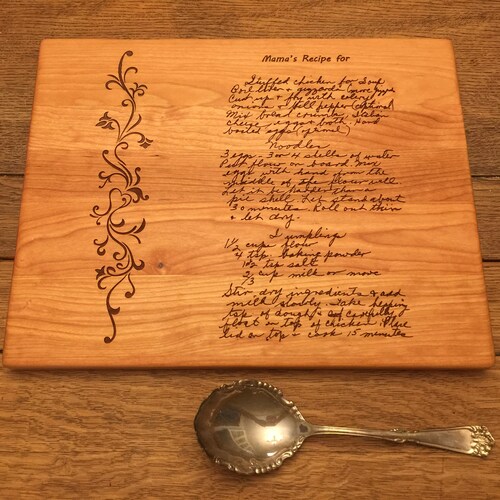 Mama's Recipe for
Stuffed chicken for Soup
Boil liver & gizzards
Cut up & fry with celery
onions & bell pepper (optional)
Mix bread crumbs, Italian
cheese, eggs & broth. Hard
boiled eggs (optional)
Noodles
3 eggs 3 or 4 shells of water
Put flour on board mix
eggs with hand from the
middle of the flour well.
pie shell. Let stand about
30 minutes. Roll out thin
& let dry.
Dumplings
1½ cups flour
4 tsp. baking powder
1½ tsp salt
2/3 cup milk or more
Stir dry ingredients & add
milk slowly. Take heaping
tsp of dough & carefully
float on top of chicken. Place
lid on top & cook 15 minutes